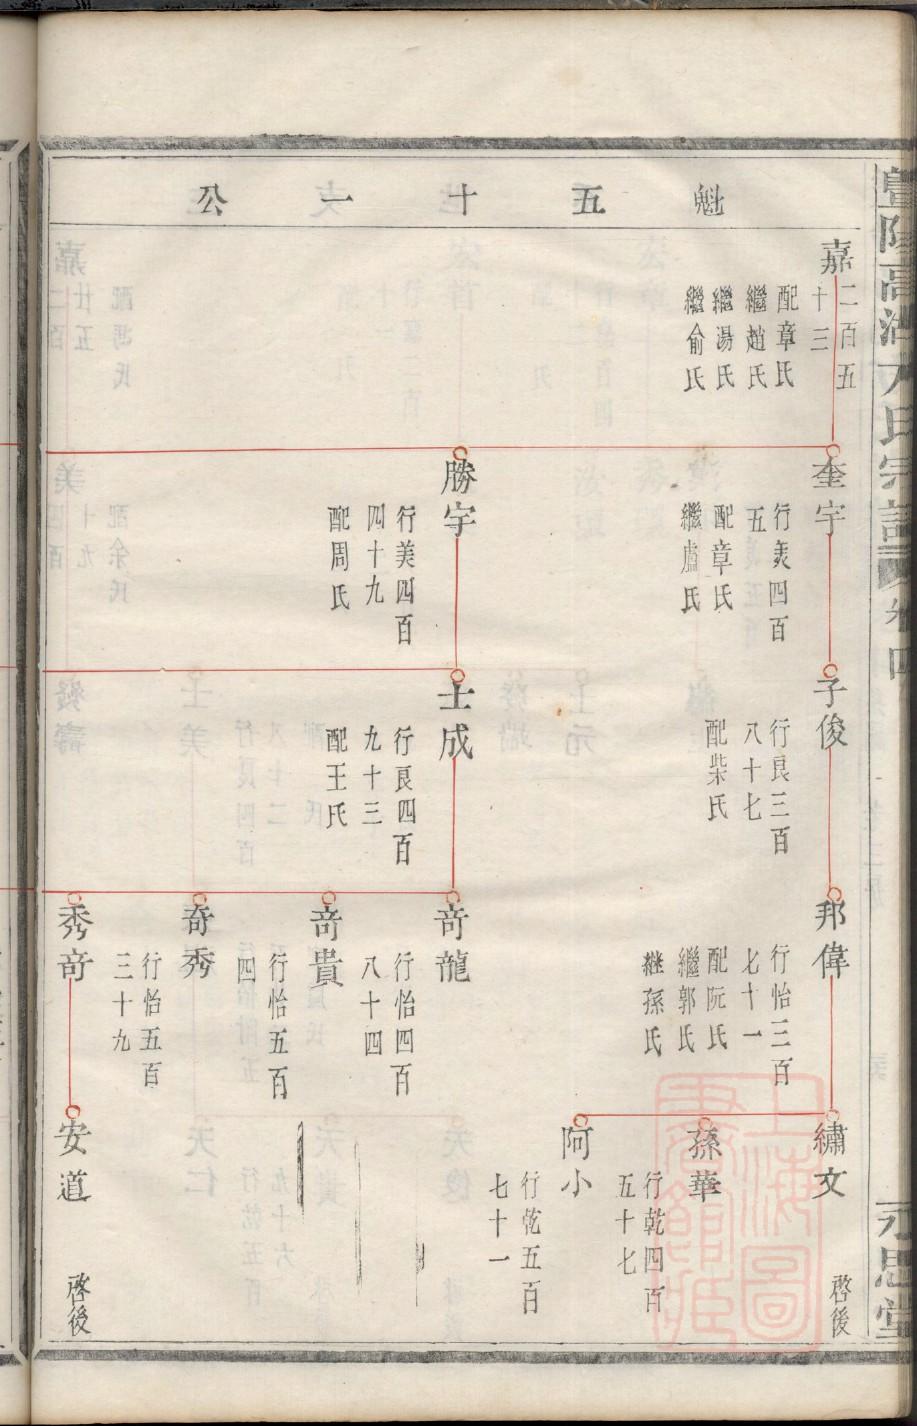 魁五十一公
嘉二百五十三
配章氏
繼趙氏
繼湯氏
繼俞氏
奎宇
行美四百五
配章氏
繼盧氏
勝宇
行美四百四十九
配周氏
子俊
行良三百八十七
配柴氏
士成
行良四百九十三
配王氏
邦偉
行怡三百七十一
配阮氏
繼郭氏
継孫氏
竒龍
行怡四百八十四
竒貴
行怡五百四
竒秀
秀竒
行怡五百三十九
繡文
啓後
孫華
行乾四百五十七
阿小
行乾五百七十一
安道
啓後
高湖
氏宗譜
卷四
永思堂
上海圖書館藏